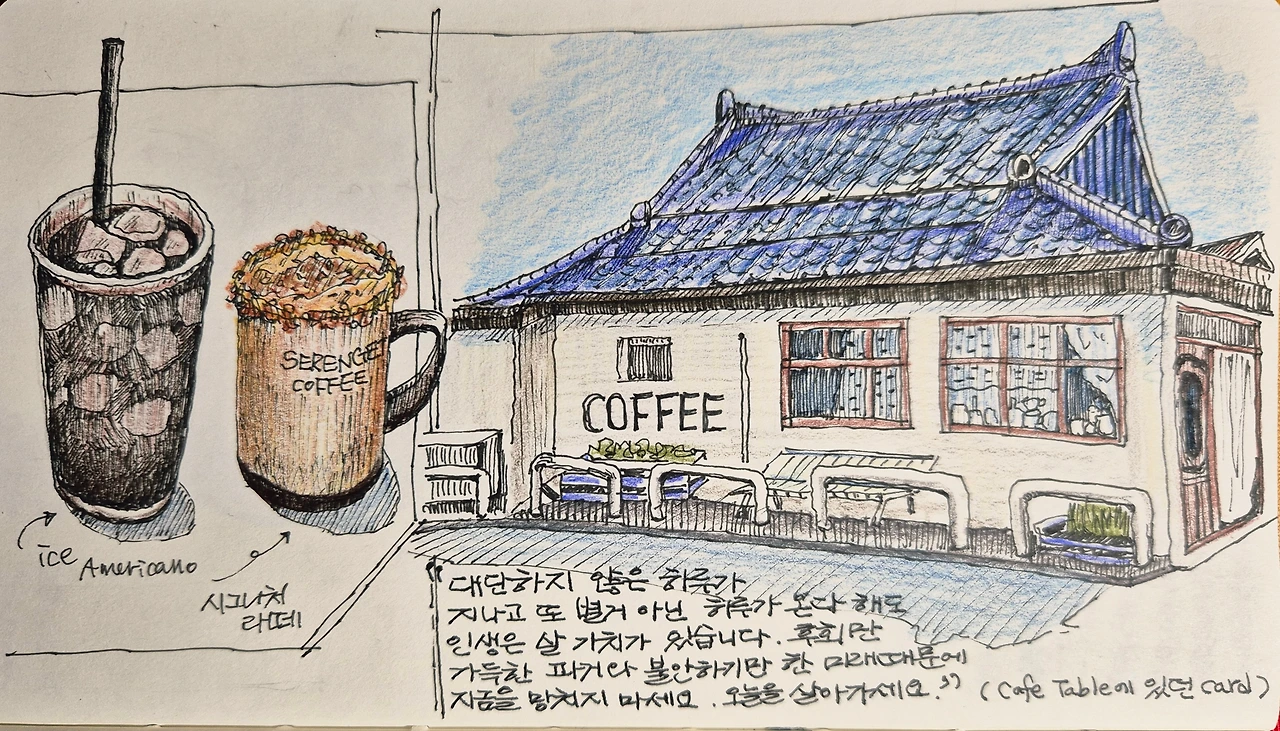 SERENGET
COFFEE
ice Americano
시그니처
라떼
COFFEE
"대단하지 않은 하루가
지나고 또 별거 아닌 하루가 온다 해도
인생은 살 가치가 있습니다. 후회만
가득한 과거와 불안하기만 한 미래때문에
지금을 망치지 마세요. 오늘을 살아가세요."
(Cafe Table에 있던 Card)